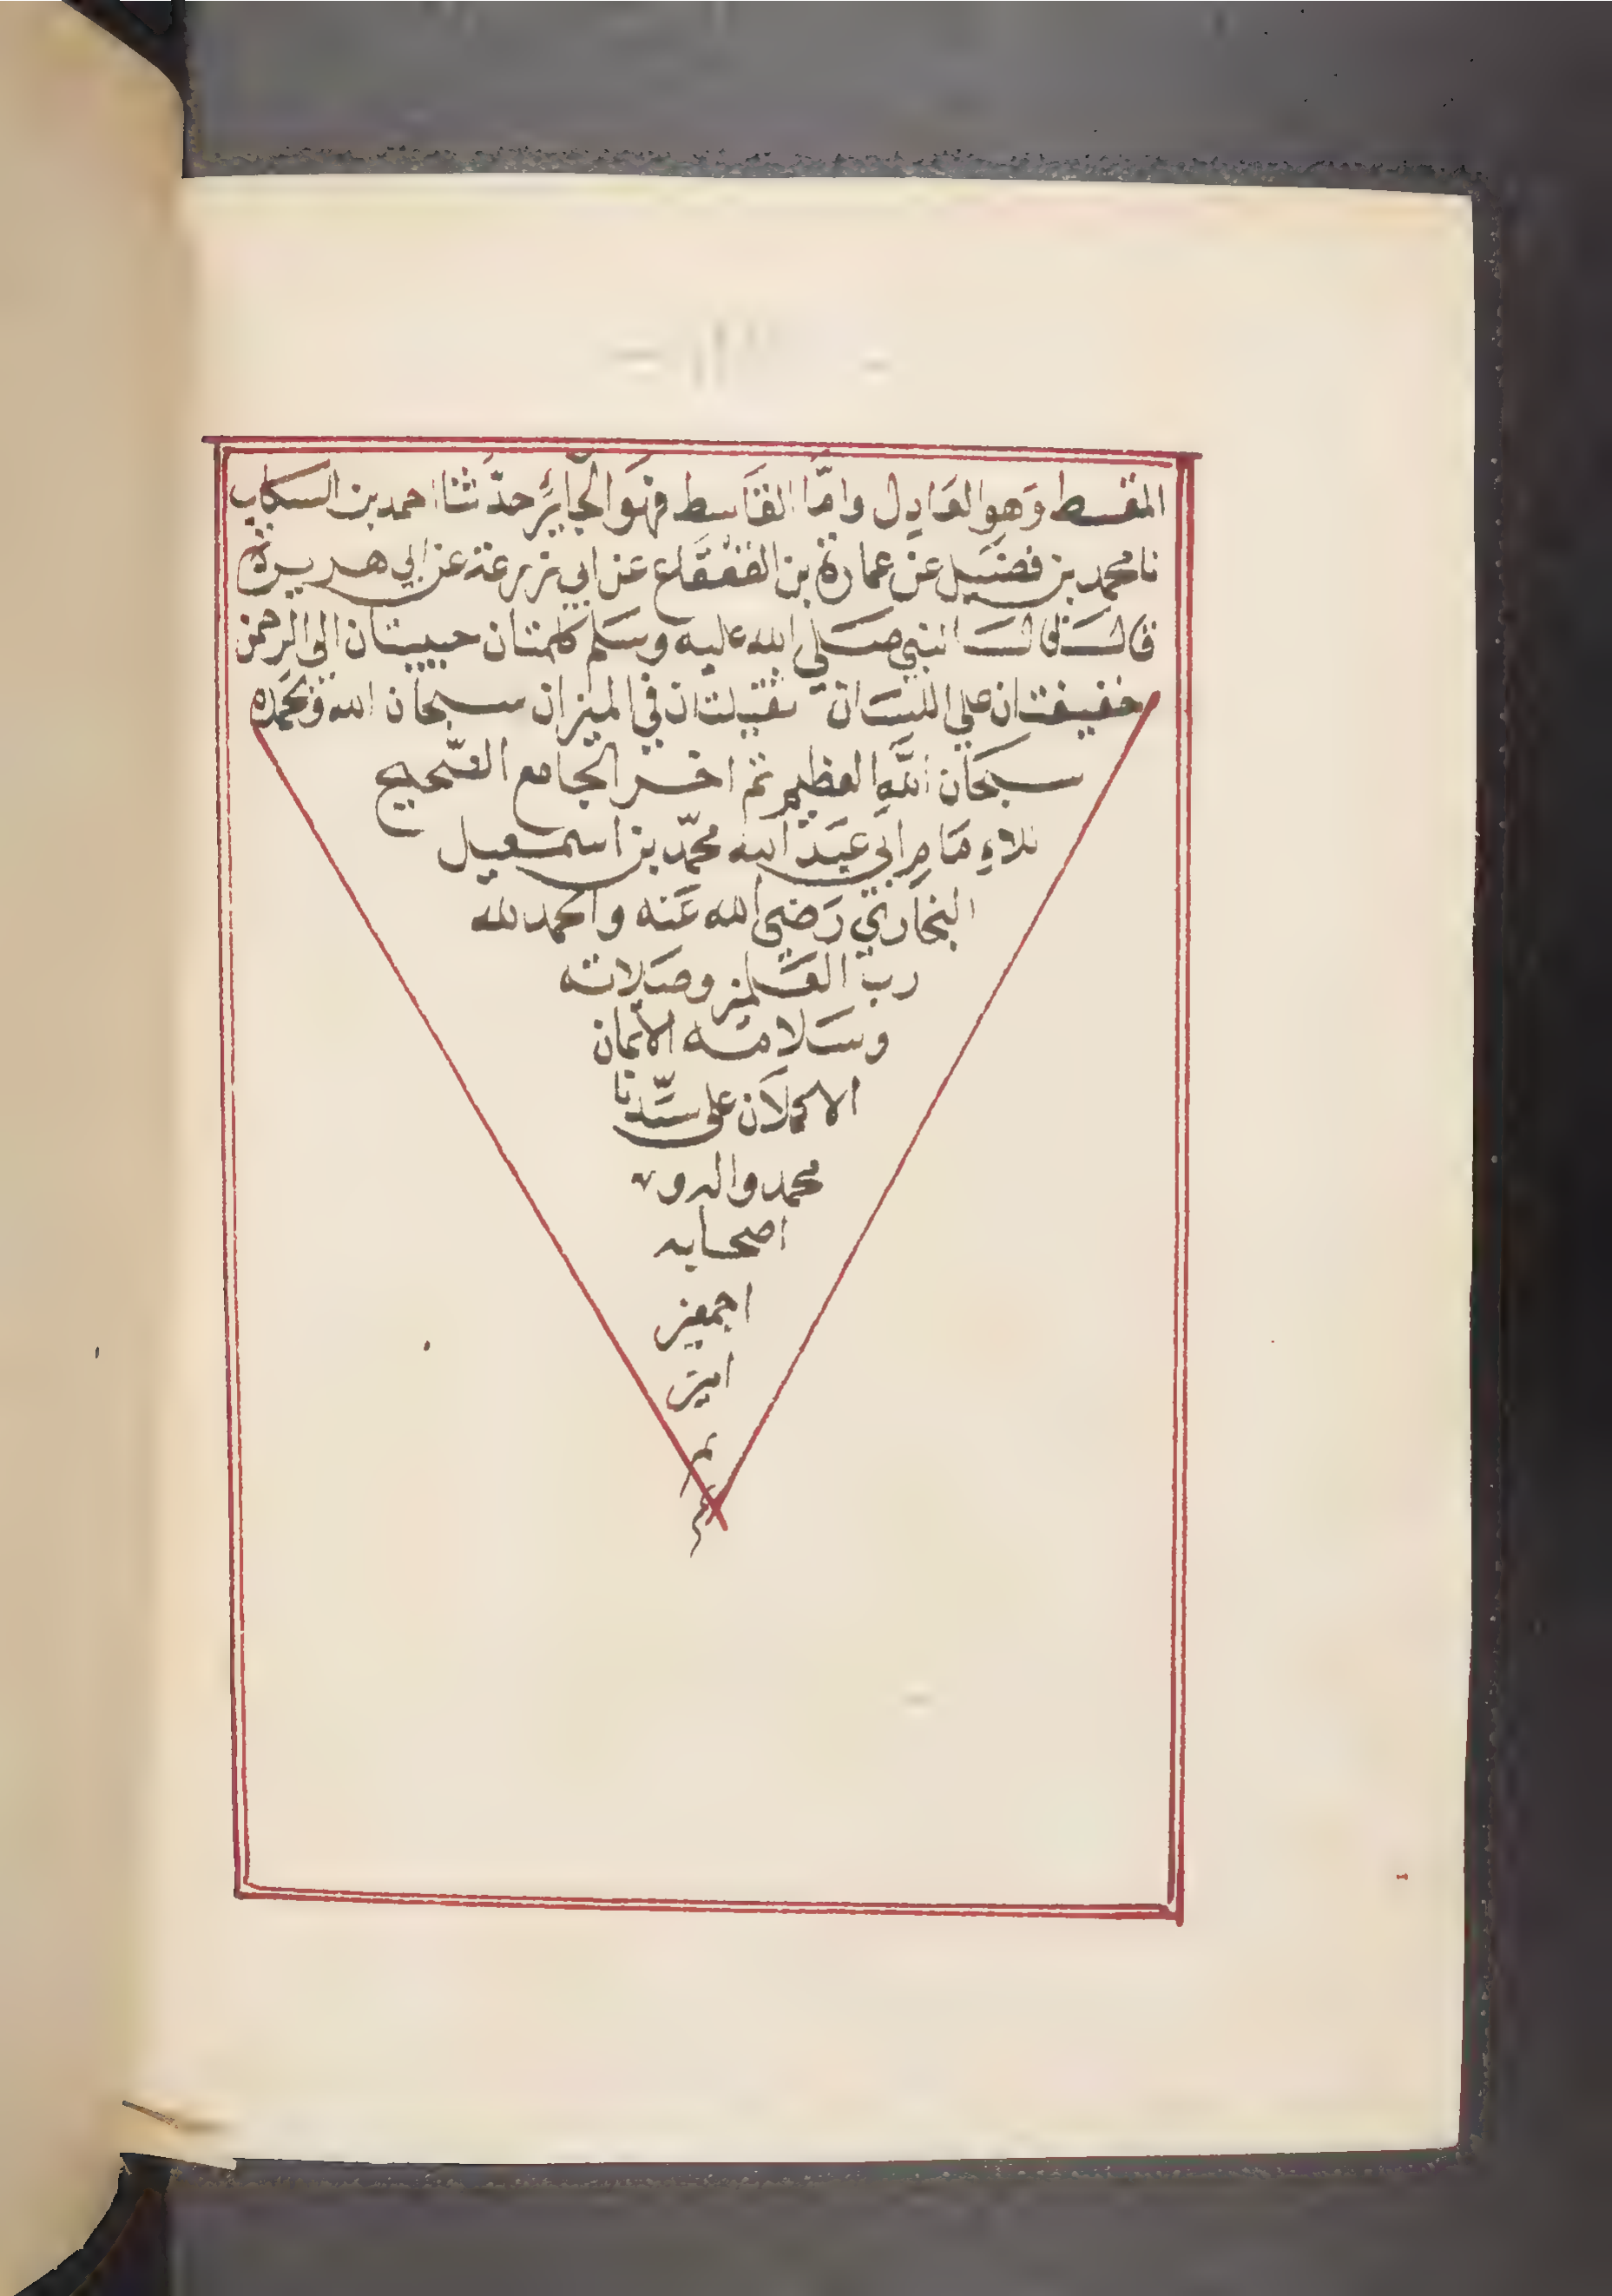 المقسط وَهو العَادِل وامّا القَاسط فهوَ الجَايِرُ حدّثنا احمد بن اسكاب
نا محمد بن فضيل عن عمارة بن القعقاع عن ابي زرعة عن ابي هريرة
قال قال النبي صَلي الله عليه وسَلم كلمتان حبيبتان الي الرحمن
خفيفتان علي اللسَان ثقيلتان في الميزان سبحان الله وبحمده
سبحَان اللَّه العظيم تم اخر الجامع الصّحيح
للاِمَامِ ابي عَبد الله محمّد بن اسمعيل
البخَاري رَضي الله عَنه والحمد لله
رب العَلمين وصَلاته
وسَلامه الاتمان
الاكملان على سَيّدنا
محمد واله و
اصحابه
اجمعين
امين
م